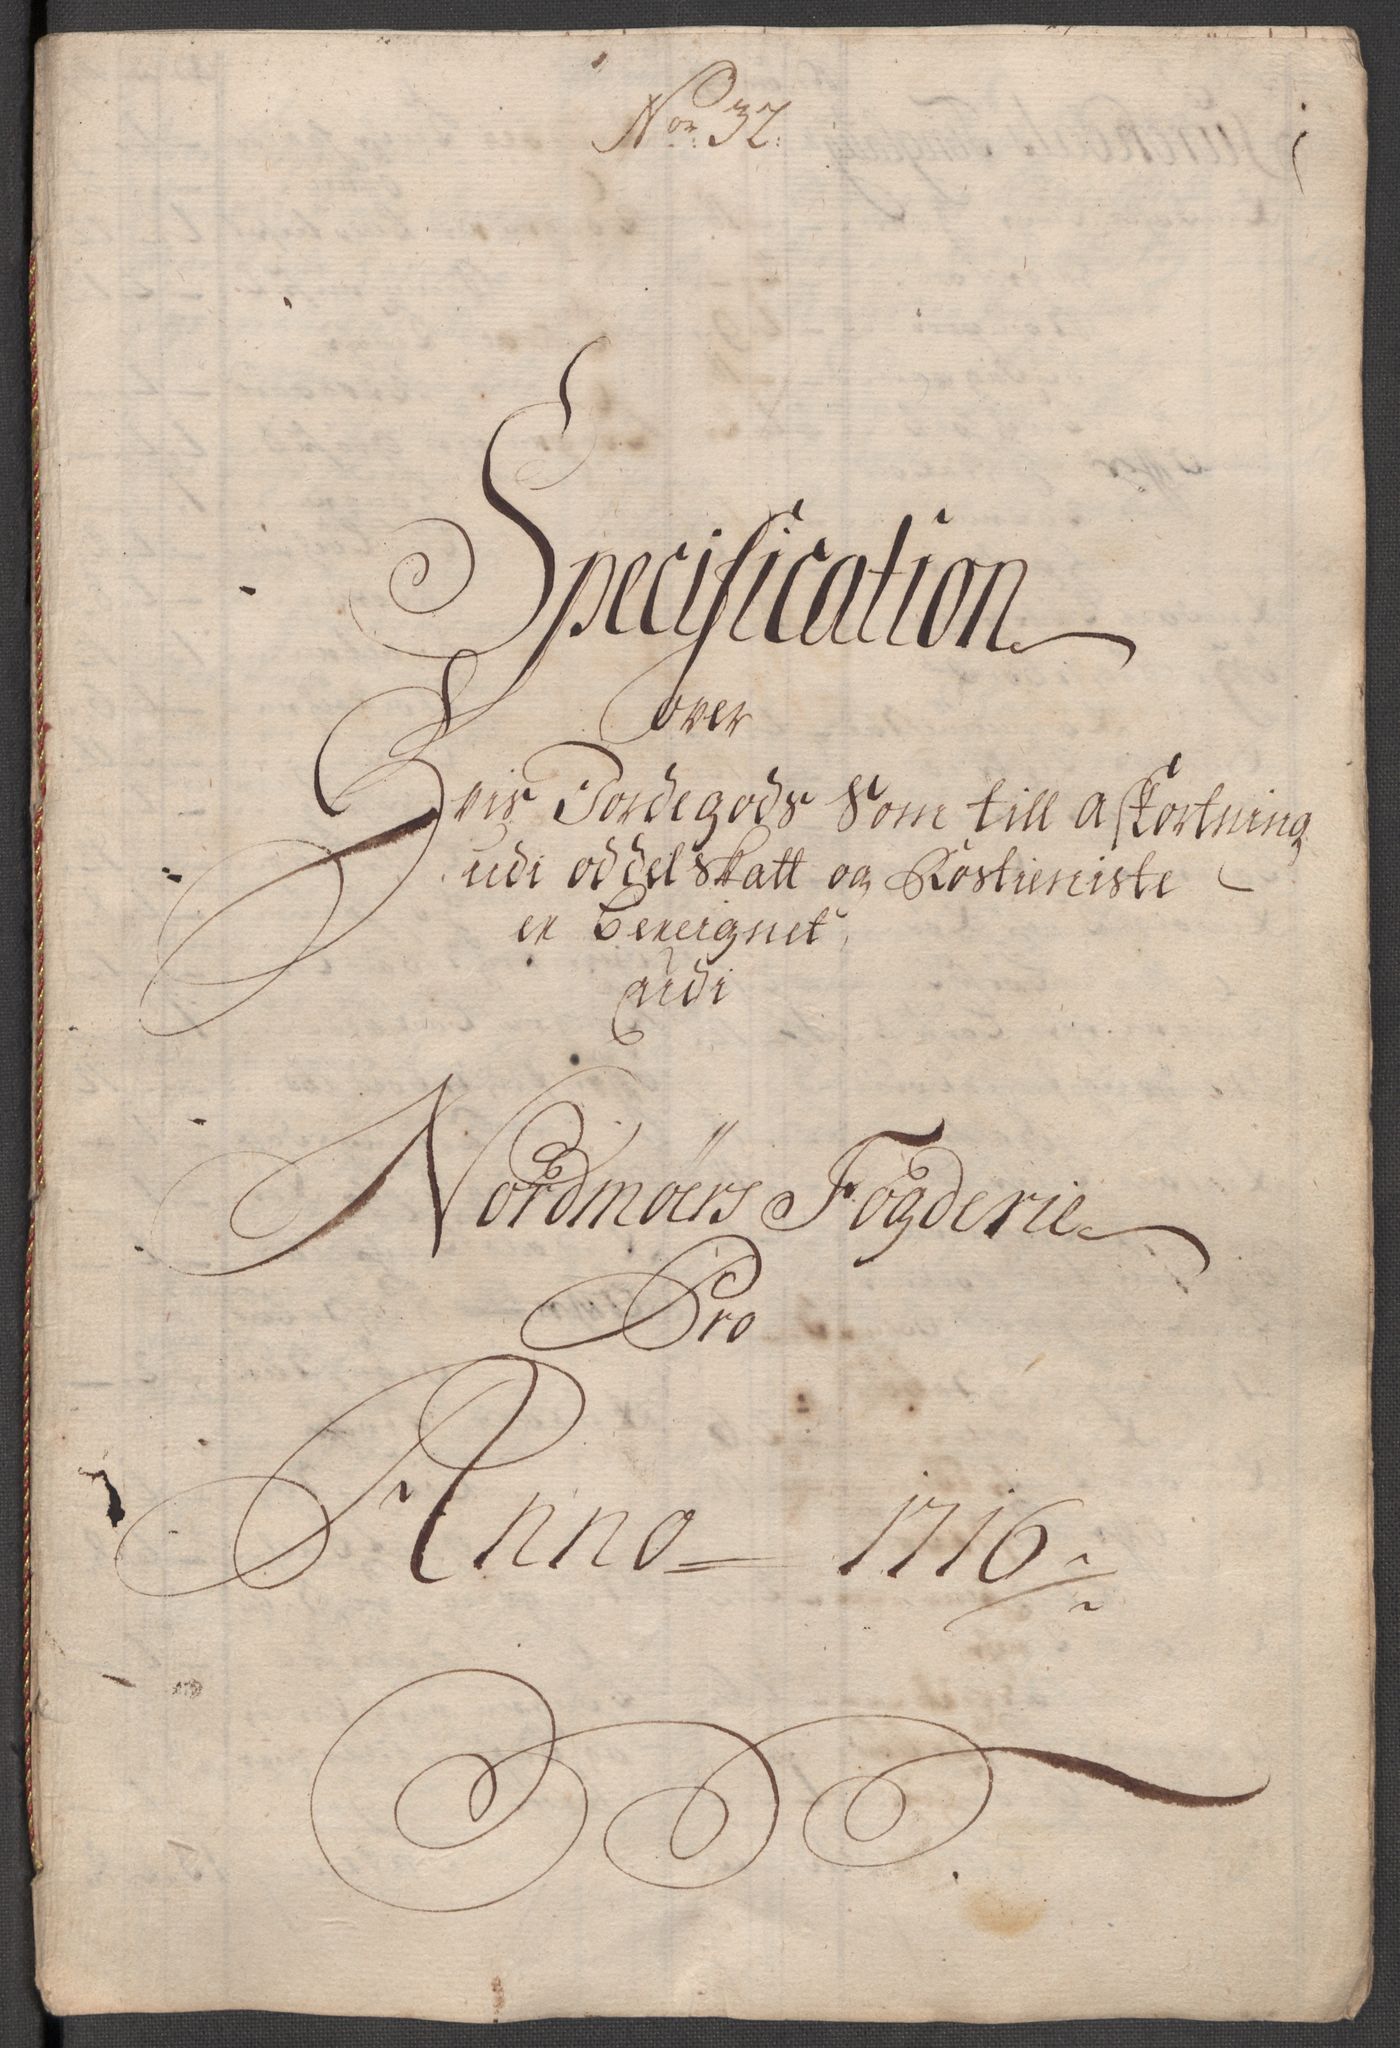 No: 32:
Specification
over
Hvis Jordegods Som till afkortning
udi oddel skatt og Rostieniste
er bereignet
udi
Nordmöers Fogderie
Pro
Anno 1716